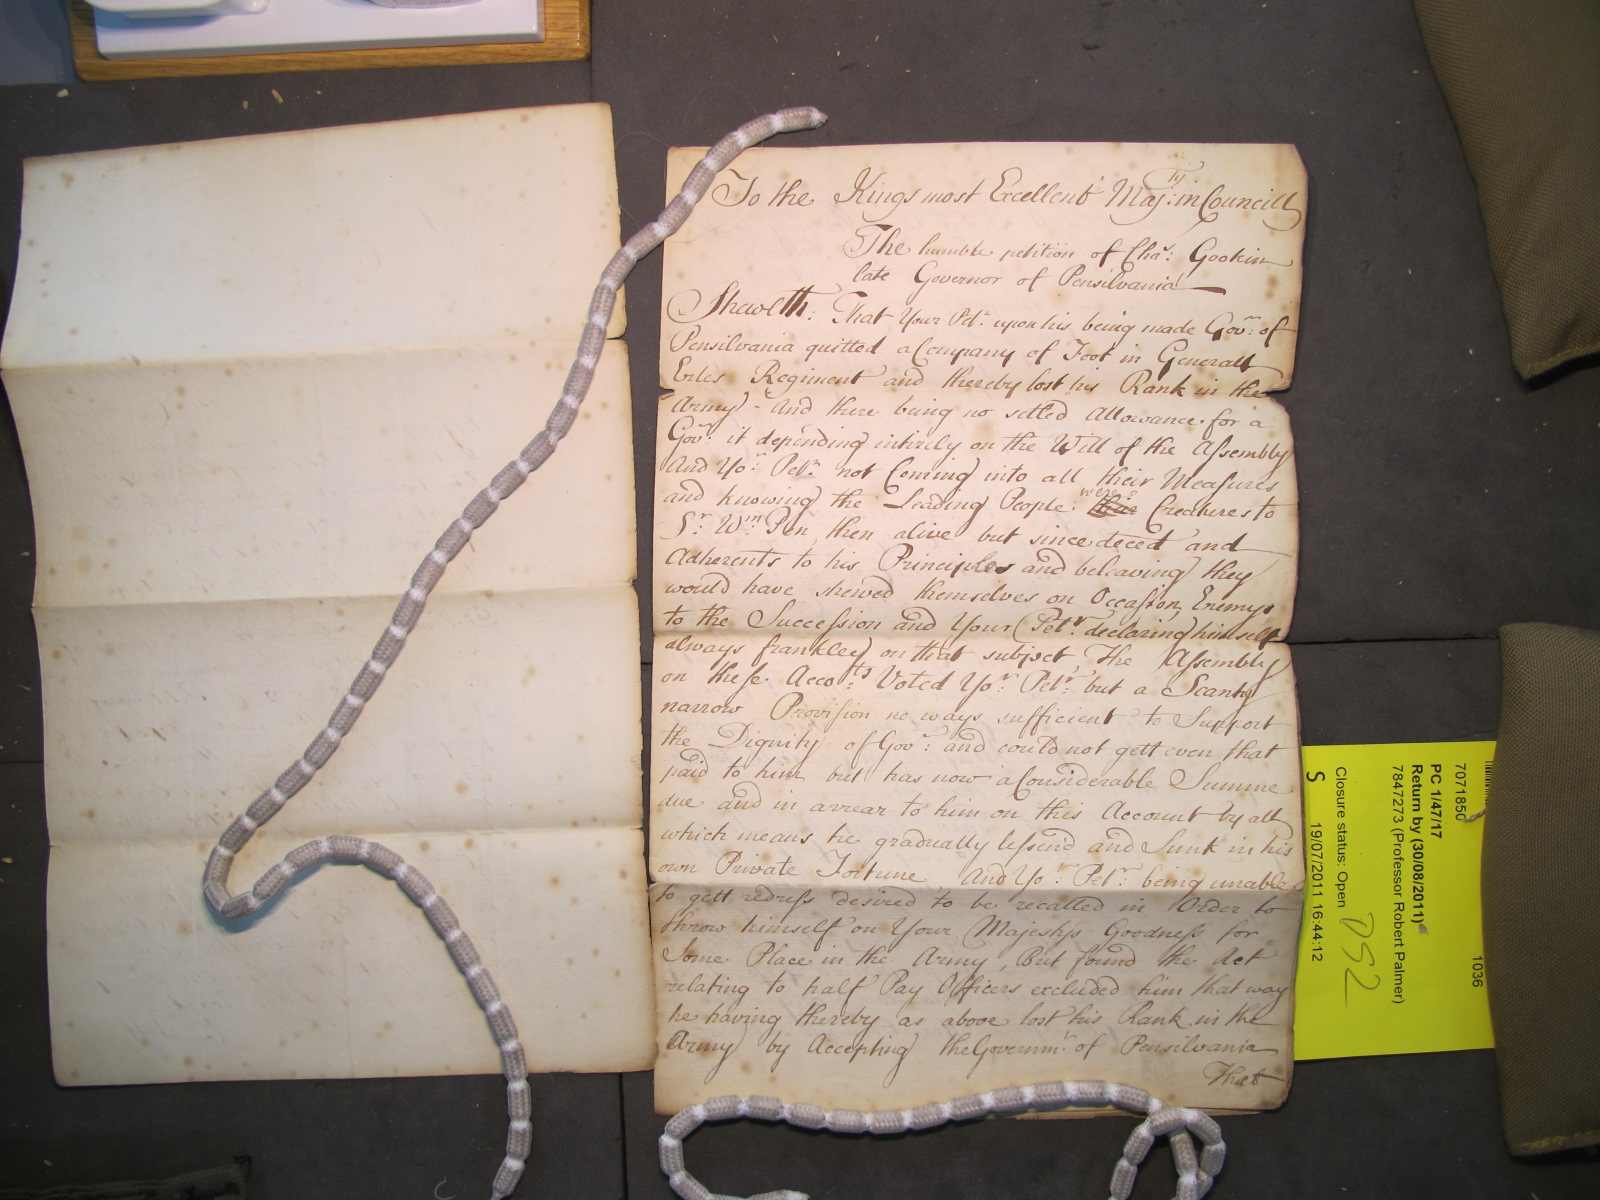 To the Kings most Excellent Maj:ty in Councill
The humble petition of Cha:s Gookin
late Governor of Pensilvania
Sheweth: That Your Pet:r upon his being made Gov:r of
Pensilvania quitted a Company of Foot in Generall
Erles Regiment and thereby lost his Rank in the
Army - And there being no setled Allowance for a
Gov:r it depending intirely on the Will of the Assembly
And Yo:r Pet:r not Coming into all their Measures
and knowing the Leading People were Creatures to
S:r W:m Pen, then alive but since deced and
Adherents to his Principles and beleaving they
would have shewed themselves on Occasion, Enemys
to the Succession and Your Pet:r declaring himself
always frankley on that subject, The Assembly
on these Acco:ts Voted Yo:r Pet:r but a Scanty
narrow Provision no ways sufficient to Support
the Dignity of Gov:r and could not gett even that
paid to him but has now a Considerable Summe
due and in arrear to him on this Account by all
which means he gradually lessend and Sunk in his
own Private Fortune And Yo:r Pet:r being unable
to gett redress desired to be recalled in Order to
throw himself on Your Majestys Goodness for
Some Place in the Army, But found the Act
relating to half Pay Officers excluded him that way
he having thereby as above lost his Rank in the
Army by Accepting the Governm:t of Pensilvania
That
7071850
1036
PC 1/47/17
Return by (30/08/2011)
7847273 (Professor Robert Palmer)
Closure status: Open
DS2
S 19/07/2011 16:44:12